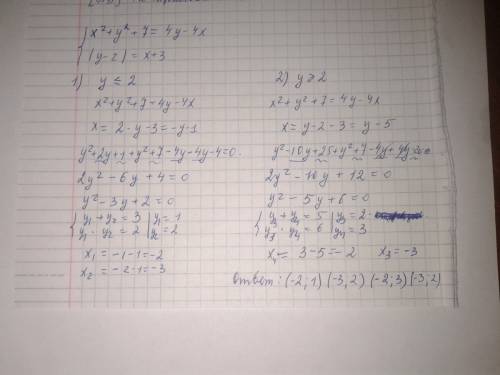 x²+y²+7=4y-4x
|y-2|=x+3
1) y≤2
x²+y²+7=4y-4x
x=2-y-3=-y-1
y²+2y+1+y²+7-4y-4y-4=0.
2y²-6y+4=0
y²-3y+2=0
y₁+y₂=3 | y₁=1
y₁·y₂=2 | y₂=2
x₁=-1-1=-2
x₂=-2-1=-3
2) y≥2
x²+y²+7=4y-4x
x=y-2-3=y-5
2y²-10y+12=0
y²-5y+6=0
y₃+y₄=5 | y₃=2
y₃·y₄=6 | y₄=3
x₄=3-5=-2 x₃=-3
ответ: (-2;1) (-3,2) (-2;3) (-3,2)